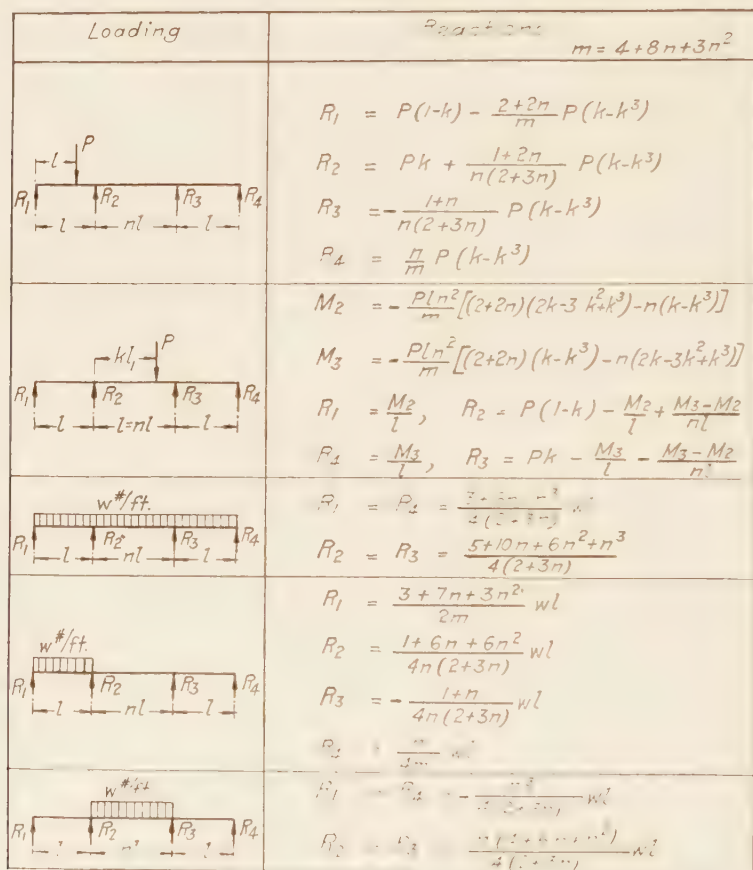 Loading
Reactions
m = 4+8n+3n²
l
P
R₁ R₂ R₃ R₄
l nl l
R₁ = P(1-k) - (2+2n)/m P(k-k³)
R₂ = Pk + (1+2n)/(n(2+3n)) P(k-k³)
R₃ = -(1+n)/(n(2+3n)) P(k-k³)
R₄ = n/m P(k-k³)
kl₁
P
R₁ R₂ R₃ R₄
l l=nl l
M₂ = -Pln²/m [(2+2n)(2k-3k²+k³)-n(k-k³)]
M₃ = -Pln²/m [(2+2n)(k-k³)-n(2k-3k²+k³)]
R₁ = M₂/l, R₂ = P(1-k) - M₂/l + (M₃-M₂)/nl
= M₃/l, R₃ = Pk - M₃/l - (M₃-M₂)/nl
w#/ft.
R₁ R₂ R₃ R₄
l nl l
R₂ = R₃ = (5+10n+6n²+n³)/(4(2+3n))
w#/ft.
R₁ R₂ R₃ R₄
l nl l
R₁ = (3+7n+3n²)/2m wl
R₂ = (1+6n+6n²)/(4n(2+3n)) wl
R₃ = -(1+n)/(4n(2+3n)) wl
w#/ft
R₁ R₂ R₃ R₄
wl